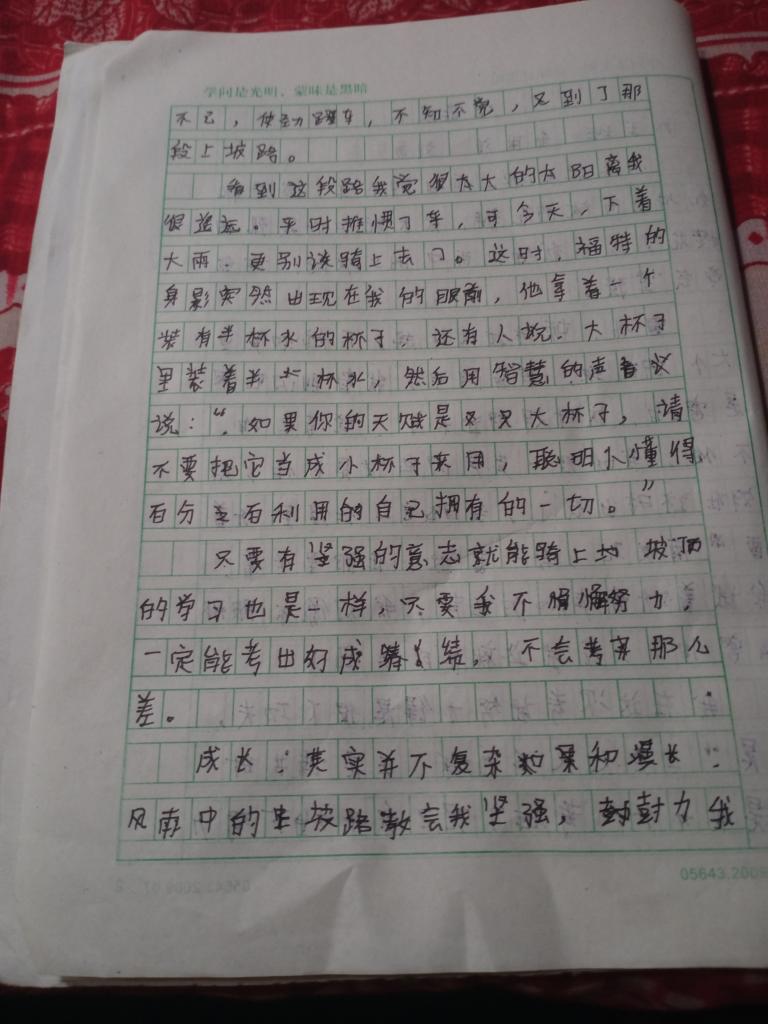 学问是光明，蒙昧是黑暗
不已，使劲蹬车，不知不觉，又到了那
段上坡路。
看到这段路我觉很大大的太阳离我
很遥远。平时推惯了车，可今天，下着
大雨，更别谈骑上去了。这时，福特的
身影突然出现在我的眼前，他拿着一个
装有半杯水的杯子，还有人说．大杯子
里装着半 杯水，然后用智慧的声音
说：“如果你的天赋是 大杯子，请
不要把它当成小杯子来用，聪明人懂得
百分之百利用的自己拥有的一切。”
只要有坚强的意志就能骑上 坡顶
的学习也是一样，只要我不懈努力，
一定能考出好成绩，不会考 那么
差。
成长：其实并不复杂如果和漫长：
风雨中的 坡路教会我坚强，鼓 力我
05643.2009